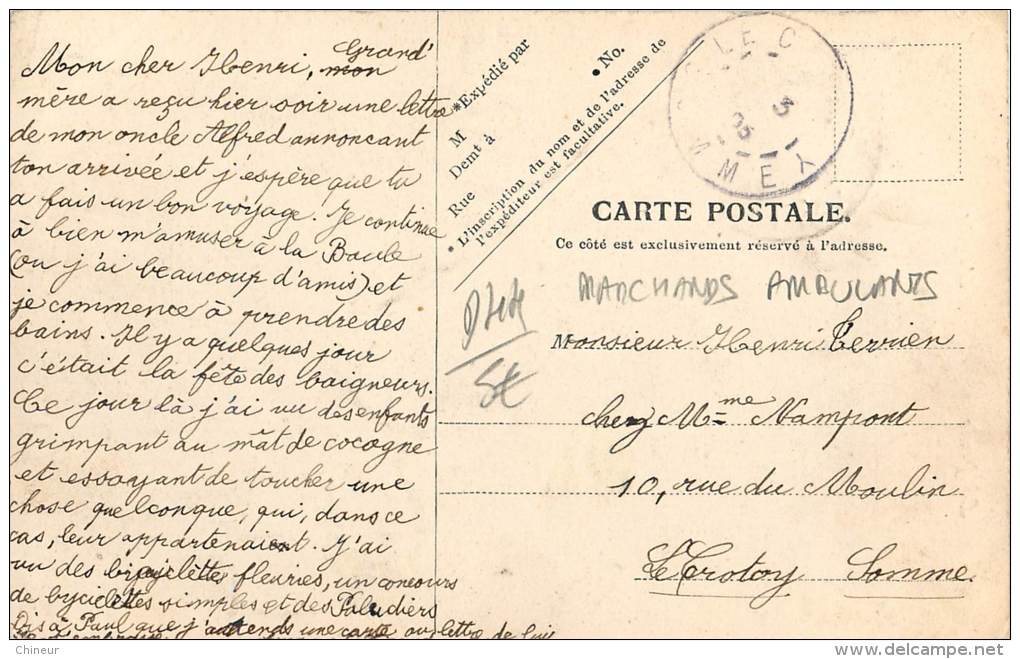 Mon cher Henri, mon Grand'
mère a reçu hier soir une lettre
de mon oncle Alfred annoncant
ton arrivée et j'espère que tu
a fais un bon voyage. Je continue
à bien m'amuser à la Baule
(ou j'ai beaucoup d'amis) et
je commence à prendre des
bains. Il y a quelques jour
c'était la fête des baigneurs.
Ce jour là j'ai vu des enfants
grimpant au mât de cocagne
et essayant de toucher une
chose quelconque, qui, dans ce
cas, leur appartenaient. J'ai
vu des bicyclettes fleuries, un concours
de byciclettes simples et des Paludiers
Dis à Paul que j'attends une carte ou lettre de lui
*Expédié par
M
Demt à
Rue
• No.
• L'inscription du nom et de l'adresse de
l'expéditeur est facultative.
LE C
3
MMEY
CARTE POSTALE.
Ce côté est exclusivement réservé à l'adresse.
MARCHANDS AMBULANTS
5€
Monsieur Henri Terrien
chez Mme Nampont
10, rue du Moulin
Le Crotoy Somme.
http://www.delcampe.net
Chineur